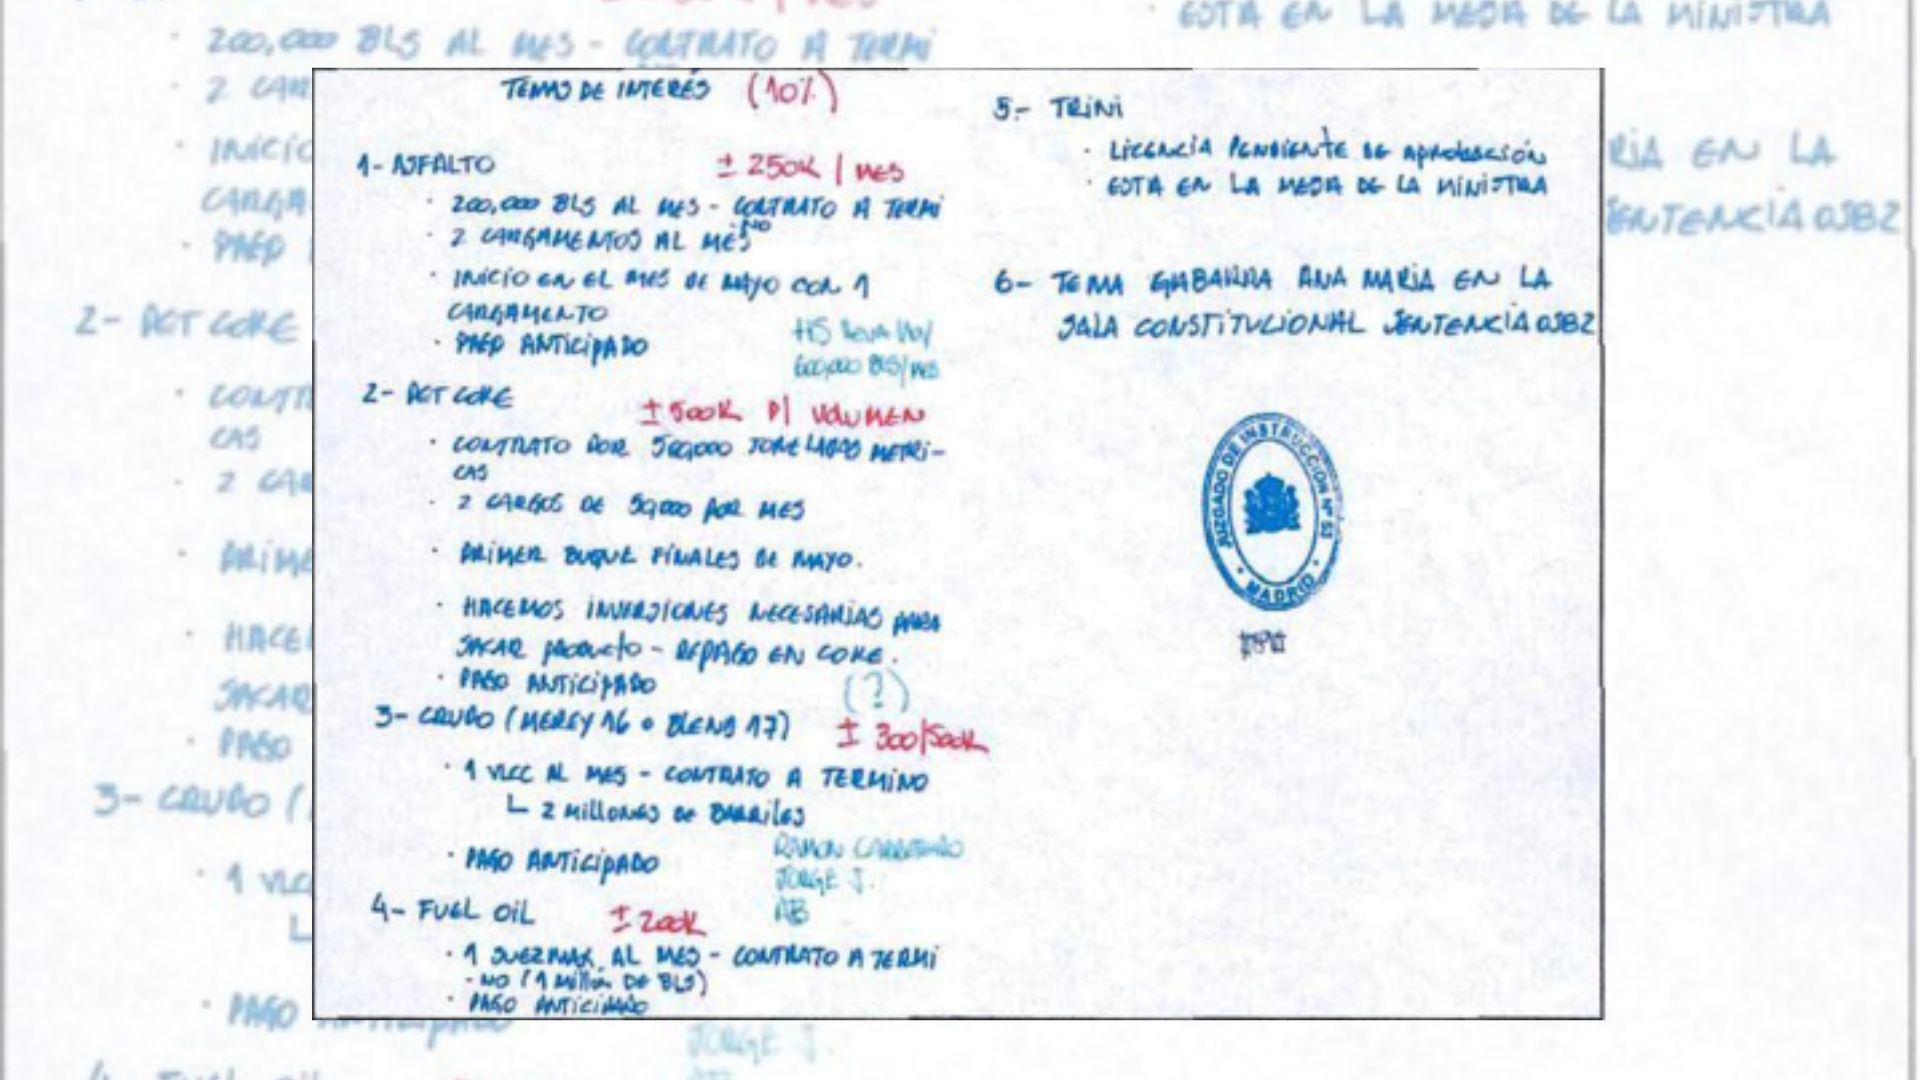 TEMAS DE INTERÉS (10%)
1- ASFALTO ± 250K / MES
· 200,000 BLS AL MES - CONTRATO A TERMI
NO
· 2 CARGAMENTOS AL MES
· INICIO EN EL MES DE MAYO CON 1
CARGAMENTO
· PAGO ANTICIPADO
600,000 BLS/MES
2- PET COKE ± 500K P/ VOLUMEN
· CONTRATO POR 500,000 TONELADAS METRI-
CAS
· 2 CARGOS DE 50,000 POR MES
· PRIMER BUQUE FINALES DE MAYO.
· HACEMOS INVERSIONES NECESARIAS PARA
SACAR PRODUCTO - REPAGO EN COKE.
· PAGO ANTICIPADO (?)
3- CRUDO (MEREY 16 o BLEND 17) ± 300/500K
· 1 VLCC AL MES - CONTRATO A TERMINO
2 MILLONES DE BARRILES
· PAGO ANTICIPADO
RAMON CARRETERO
JORGE J.
AB
4- FUEL OIL ± 200K
· 1 SUEZMAX AL MES - CONTRATO A TERMI
- NO (1 MILLÓN DE BLS)
· PAGO ANTICIPADO
5.- TRINI
· LICENCIA PENDIENTE DE APROBACIÓN
· ESTA EN LA MESA DE LA MINISTRA
6- TEMA GABARRA ANA MARIA EN LA
SALA CONSTITUCIONAL SENTENCIA 0382
JUZGADO DE INSTRUCCIÓN Nº 53
· MADRID ·